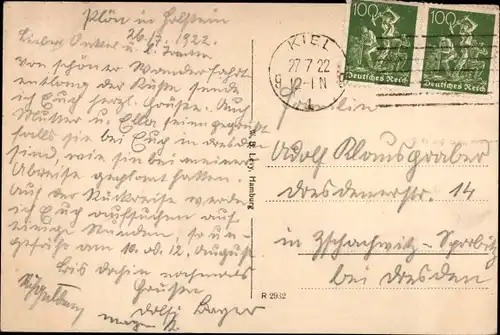 Plön in Holstein
26./7. 1922.
Lieber Onkel u. l. Tante
von schöner Wanderfahrt
entlang der Küste sende
ich Euch herzl. Grüße. Auch
Mutter u. Ella seien gegrüßt
falls sie bei Euch in Dresden
sind, wie sie bei meiner
Abreise geplant hatten.
Auf der Rückreise werde
ich Euch aufsuchen auf
einige Stunden, so un-
gefähr am 10. od. 12. August
Bis dahin nochmals
Grüße
Dolfi
W. B. Lévy, Hamburg
R 2932
100
Deutsches Reich
100
Deutsches Reich
KIEL
27.7.22
12-1 N
1
g g
Familie
Adolf Klausgraber
Dresdenerstr. 14
in Zschachwitz-Sporbitz
bei Dresden